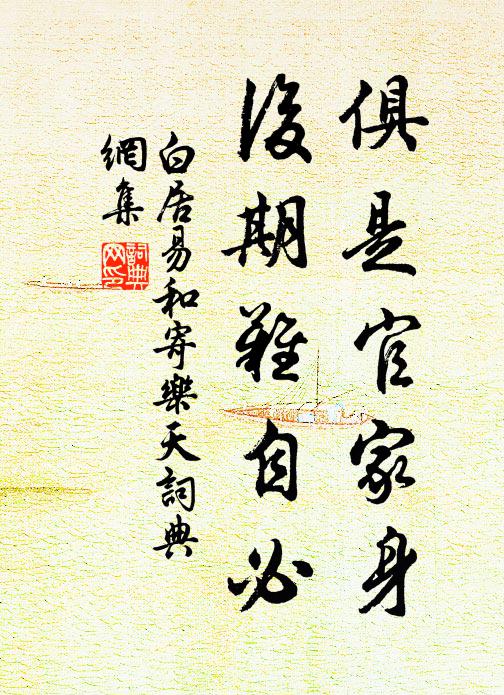 俱是官家身
後期難自必
白居易和寄樂天詞典
網集
詞典
网印